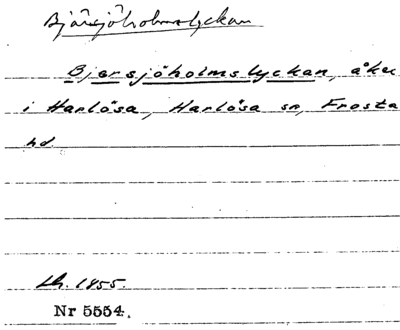 Bjärsjöholmslyckan
Bjersjöholmslyckan, åker
i Harlösa, Harlösa sn, Frosta
hd
Lh. 1855.
Nr 5554.